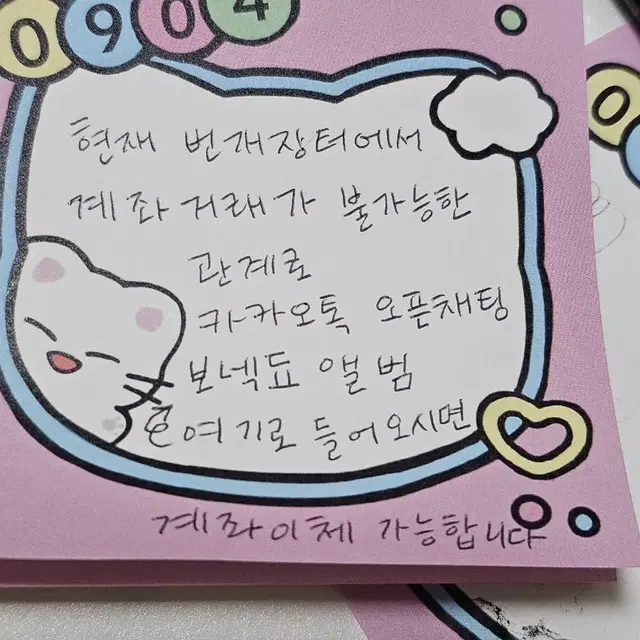 0904
현재 번개장터에서
계좌거래가 불가능한
관계로
카카오톡 오픈채팅
보넥됴 앨범
여기로 들어오시면
계좌이체 가능합니다
0